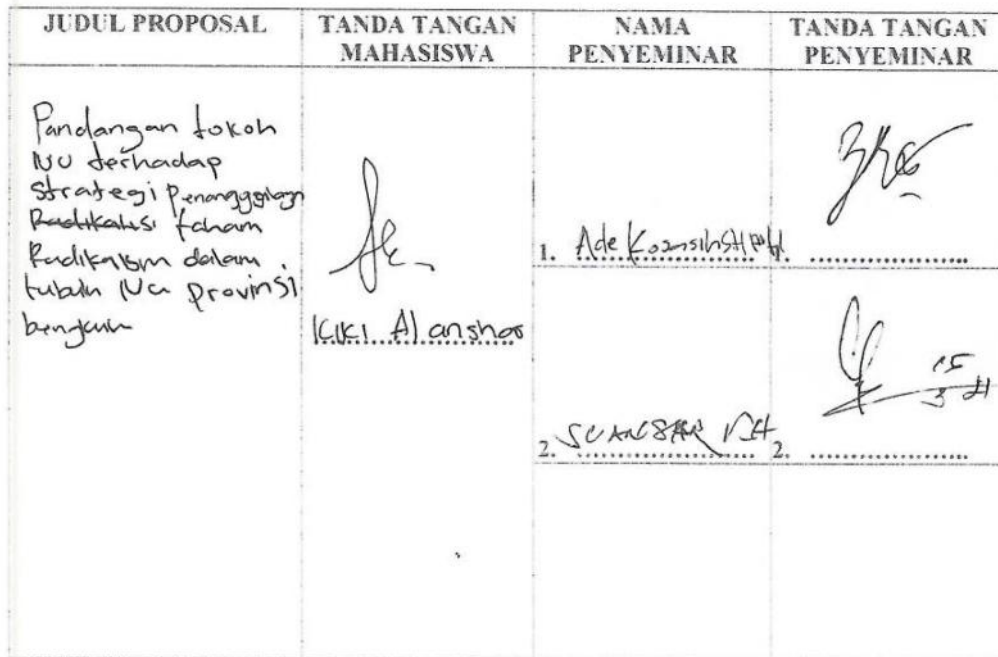 JUDUL PROPOSAL
TANDA TANGAN
MAHASISWA
NAMA
PENYEMINAR
TANDA TANGAN
PENYEMINAR
Pandangan tokoh
NU terhadap
Strategi Penanggulangan
Radikalisi faham
Radikalism dalam
tubuh NU provinsi
bengkulu
Kiki Al anshor
1. Ade
1.
2.
2.
15
3